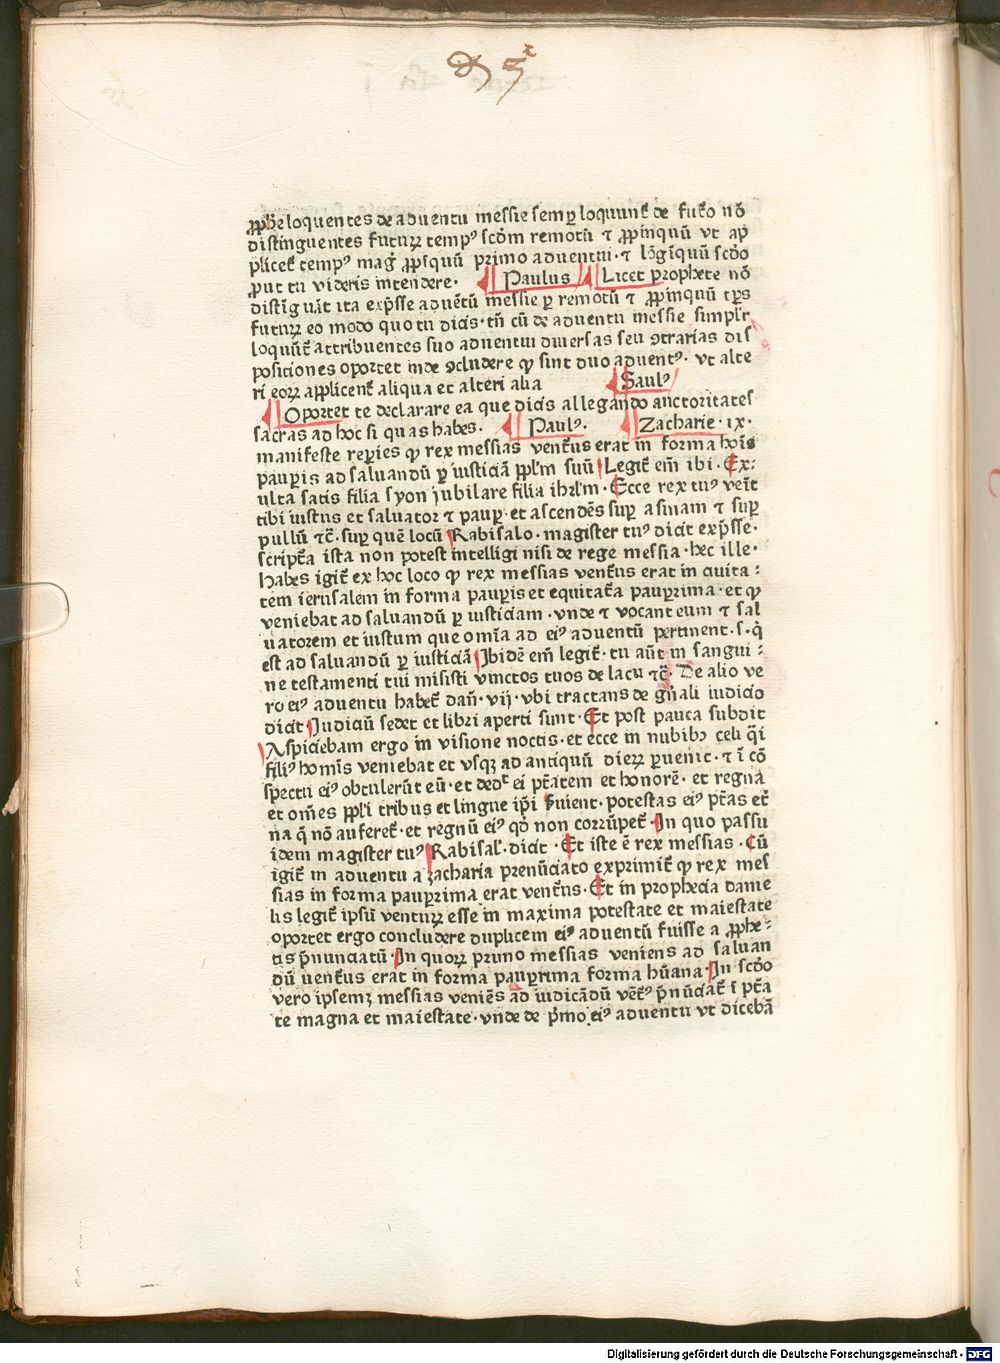 ꝓph̄e loquentes de aduentu messie semꝑ loquunt᷑ de fut᷑o nō
distinguentes futurꝝ tempꝰ scd̄m remotū ⁊ ꝓpinquū vt aꝑ
plicet᷑ tempꝰ mag᷑ ꝓpīquū primo aduentui · ⁊ lōgīquū scd̄o
ꝓut tu videris intendere · Paulus Licet prophete nō
distīguāt ita exp̄sse aduētū messie ꝑ remotū ⁊ ꝓpinquū tp̄s
futurꝝ eo modo quo tu dicis · tn̄ cū de aduentu messie simpl̄r
loquūt᷑ attribuentes suo aduentui diuersas seu ꝯtrarias dis
positiones oportet inde ꝯcludere ꝙ sint duo aduentꝰ · vt alte
ri eorꝝ applicent᷑ aliqua et alteri alia Saulꝰ
Oportet te declarare ea que dicis allegando auctoritates
sacras ad hoc si quas habes · Paulꝰ · Zacharie · ix ·
manifeste reꝑies ꝙ rex messias vent᷑us erat in forma hoīs
pauꝑis ad saluandū ꝑ iusticiā ppl̄m suū Legit᷑ em̄ ibi · Ex:
ulta satis filia syon iubilare filia ihrl̄m · Ecce rex tuꝰ veīt
tibi iustus et saluator ⁊ paupꝑ · et ascendēs suꝑ asinam ⁊ suꝑ
pullū ⁊c̄ · suꝑ quē locū Rabisalo · magister tuꝰ dicit exp̄sse ·
script᷑a ista non potest intelligi nisi de rege messia · hec ille ·
habes igit᷑ ex hoc loco ꝙ rex messias vent᷑us erat in ciuita :
tem ierusalem in forma pauꝑis et equitat᷑a pauꝑrima · et ꝙ
veniebat ad saluandū ꝑ iusticiam · vnde ⁊ vocant eum ⁊ sal
uatorem et iustum que om̄ia ad eiꝰ aduentū pertinent · s · q̄
est ad saluandū ꝑ iusticiā Ibidē em̄ legit᷑ · tu aūt in sangui :
ne testamenti tui misisti vinctos tuos de lacu ⁊c̄ · De alio ve
ro eiꝰ aduentu habet᷑ dan̄ · vij · vbi tractans de gn̄ali iudicio
dicit Iudiciū sedet et libri aperti sunt · Et post pauca subdit
Aspiciebam ergo in visione noctis · et ecce in nubibꝫ celi q̄i
filiꝰ hom̄is veniebat et vsqꝫ ad antiquū dierꝝ ꝑuenit · ⁊ ī cō
spectu eiꝰ obtulerūt eū · et dedᷣt ei pt̄atem et honorē · et regna
et om̄es ppl̄i tribus et lingue ip̄i fuient · potestas eiꝰ pt̄as et᷑
na q̄ nō auferet᷑ · et regnū eiꝰ qd̄ non corrūpet᷑ · In quo passu
idem magister tuꝰ Rabisal̄ · dicit · Et iste ē rex messias · Cū
igit᷑ in aduentu a zacharia prenūciato exprimit᷑ ꝙ rex mes
sias in forma pauꝑrima erat vent᷑us · Et in prophecia danie
lis legit᷑ ipsū venturꝝ esse in maxima potestate et maiestate
oportet ergo concludere duplicem eiꝰ aduentū fuisse a ꝓphe :
tis p̄nunciatū · In quorꝝ primo messias veniens ad saluan
dū uent᷑us erat in forma pauꝑrima forma hūana · In scd̄o
vero ipsemꝫ messias veniēs ad iudicādū vēt᷑ꝰ p̄nūciat᷑ ī pt̄a
te magna et maiestate · vnde de p̄mo eiꝰ aduentu vt dicebā
Digitalisierung gefördert durch die Deutsche Forschungsgemeinschaft - DFG